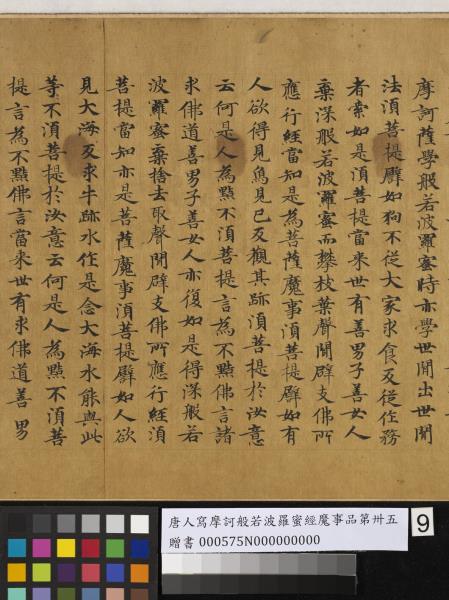 摩訶薩學般若波羅蜜時亦學世間出世間
法須菩提譬如狗不從大家求食反從作務
者索如是須菩提當來世有善男子善女人
棄深般若波羅蜜而攀枝葉聲聞辟支佛所
應行經當知是為菩薩魔事須菩提譬如有
人欲得見象見已反觀其跡須菩提於汝意
云何是人為黠不須菩提言為不黠佛言諸
求佛道善男子善女人亦復如是得深般若
波羅蜜棄捨去取聲聞辟支佛所應行經須
菩提當知亦是菩薩魔事須菩提譬如人欲
見大海反求牛跡水作是念大海水能與此
等不須菩提於汝意云何是人為黠不須菩
提言為不黠佛言當來世有求佛道善男
唐人寫摩訶般若波羅蜜經魔事品第卅五
贈書 000575N000000000
9